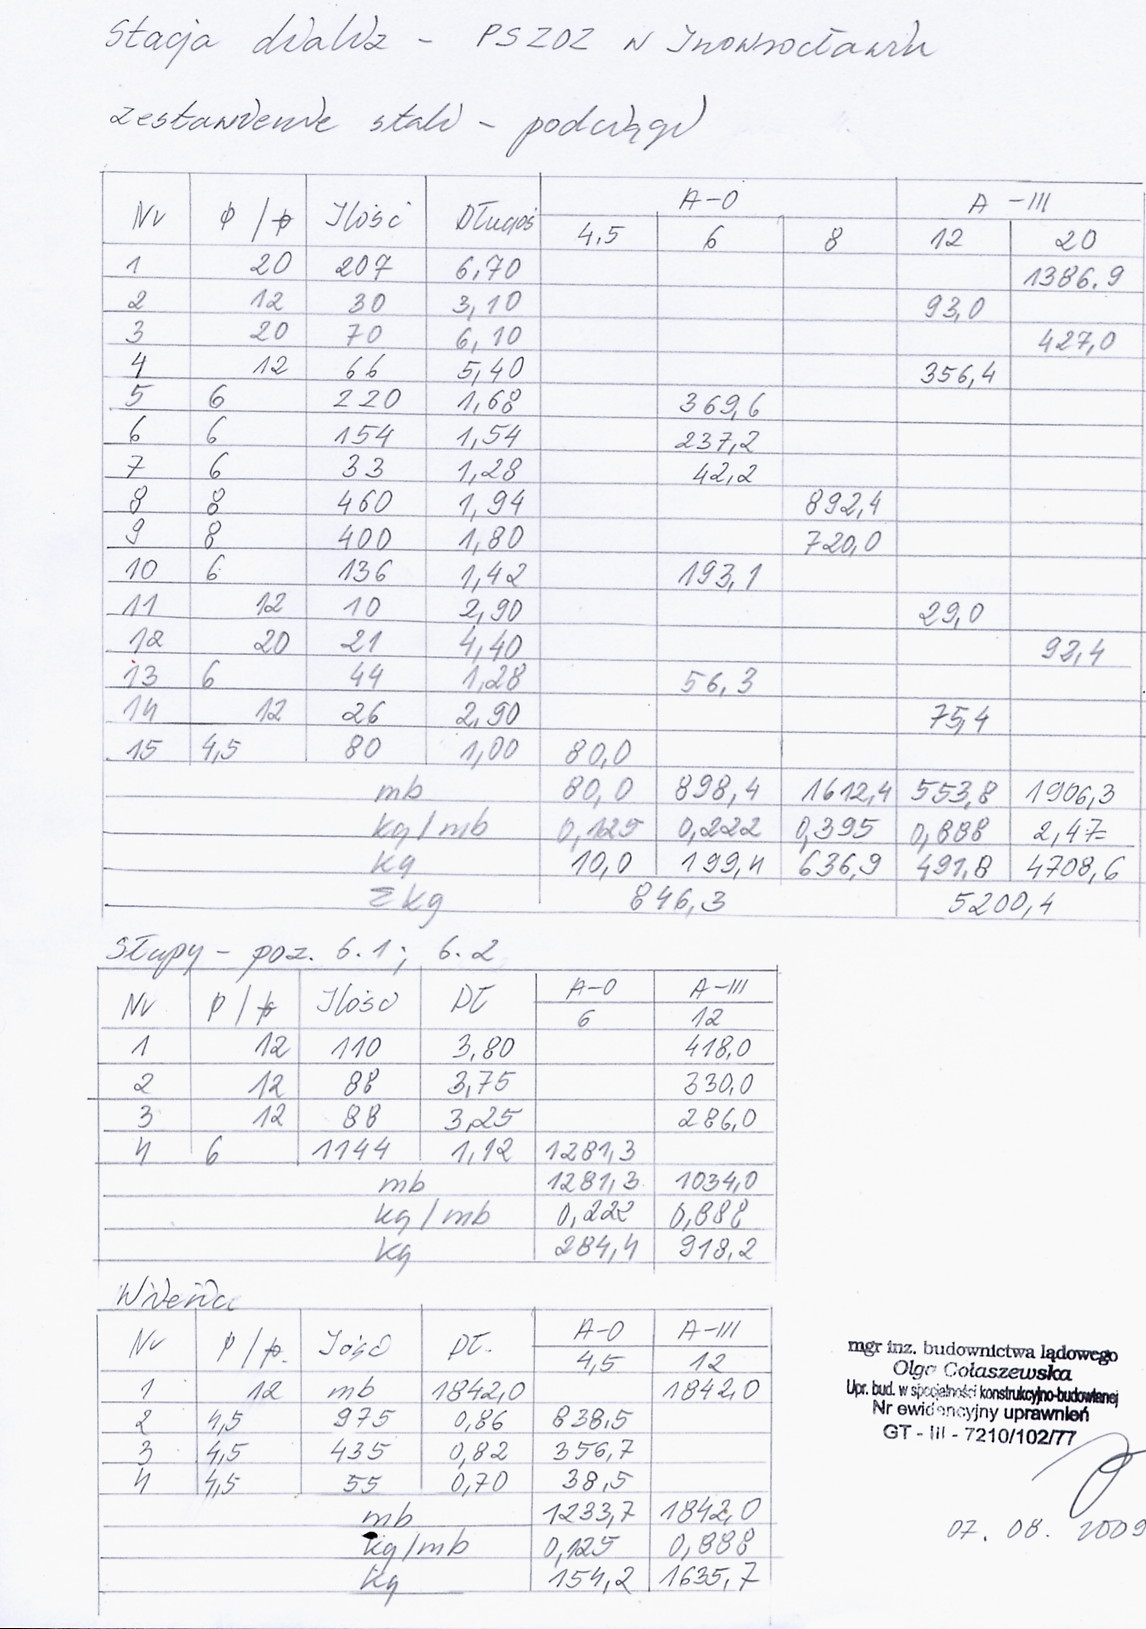 Stacja dializ - PSZOZ w Inowrocławiu
Zestawienie stali - podciągi
A-0 A-III
Nr φ / ⌽ Ilość Długość 4,5 6 8 12 20
1 20 207 6,70 1386,9
2 12 30 3,10 93,0
3 20 70 6,10 427,0
4 12 66 5,40 356,4
5 6 220 1,68 369,6
6 6 154 1,54 237,2
7 6 33 1,28 42,2
8 8 460 1,94 892,4
9 8 400 1,80 720,0
10 6 136 1,42 193,1
11 12 10 2,90 29,0
12 20 21 4,40 92,4
13 6 44 1,28 56,3
14 12 26 2,90 75,4
15 4,5 80 1,00 80,0
mb 80,0 898,4 1612,4 553,8 1906,3
kg/mb 0,125 0,222 0,395 0,888 2,47
kg 10,0 199,4 636,9 491,8 4708,6
Σkg 846,3 5200,4
Słupy - poz. 6.1; 6.2
A-0 A-III
Nr φ / ⌽ Ilość Dł 6 12
1 12 110 3,80 418,0
2 12 88 3,75 330,0
3 12 88 3,25 286,0
4 6 1144 1,12 1281,3
mb 1281,3 1034,0
kg/mb 0,222 0,888
kg 284,4 918,2
Wieńce
A-0 A-III
Nr φ / ⌽ Ilość Dł. 4,5 12
1 12 mb 1842,0 1842,0
2 4,5 975 0,86 838,5
3 4,5 435 0,82 356,7
4 4,5 55 0,70 38,5
mb 1233,7 1842,0
kg/mb 0,125 0,888
kg 154,2 1635,7
mgr inż. budownictwa lądowego
Olga Cołaszewska
Upr. bud. w specjalności konstrukcyjno-budowlanej
Nr ewidencyjny uprawnień
GT - III - 7210/102/77
07. 08. 2009